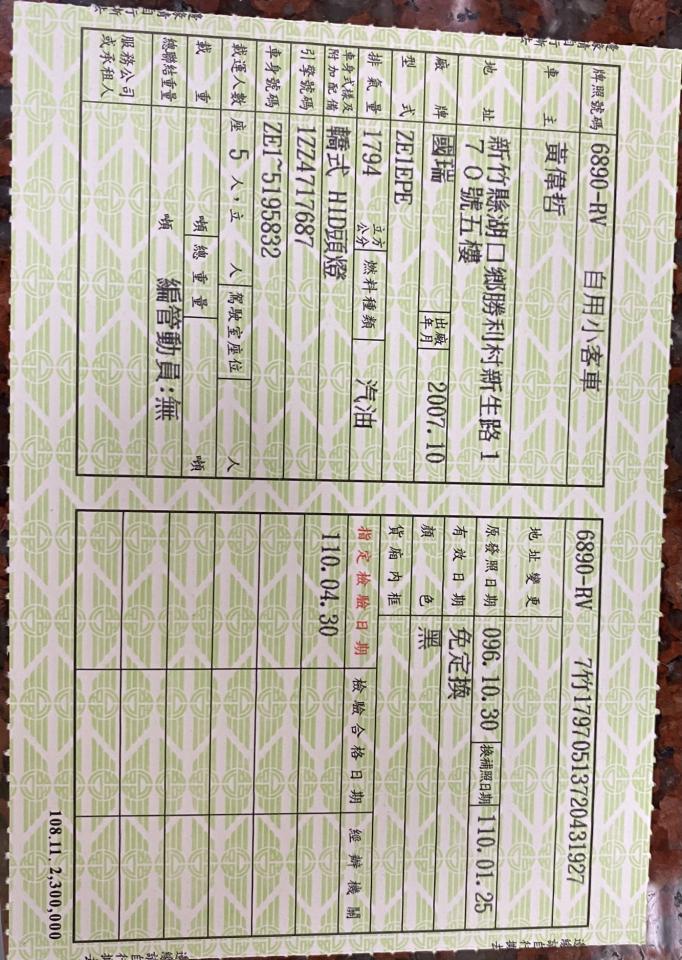 牌照號碼 6890-RV 自用小客車
車主 黃偉哲
地址 新竹縣湖口鄉勝利村新生路1
70號五樓
廠牌 國瑞 出廠年月 2007.10
型式 ZE1EPE
排氣量 1794 立方公分 燃料種類 汽油
車身式樣及附加配備 轎式 HID頭燈
引擎號碼 1ZZ4717687
車身號碼 ZE1~5195832
載運人數 座 5 人，立 人 駕駛室座位 人
載重 噸 總重量 噸
總聯結重量 噸 編管動員:無
服務公司或承租人
6890-RV 7竹1797051372043192​7
地址變更
原發照日期 096.10.30 換補照日期 110.01.25
有效日期 免定換
顏色 黑
貨廂內框
指定檢驗日期 檢驗合格日期 經辦機關
110.04.30
108.11. 2,300,000